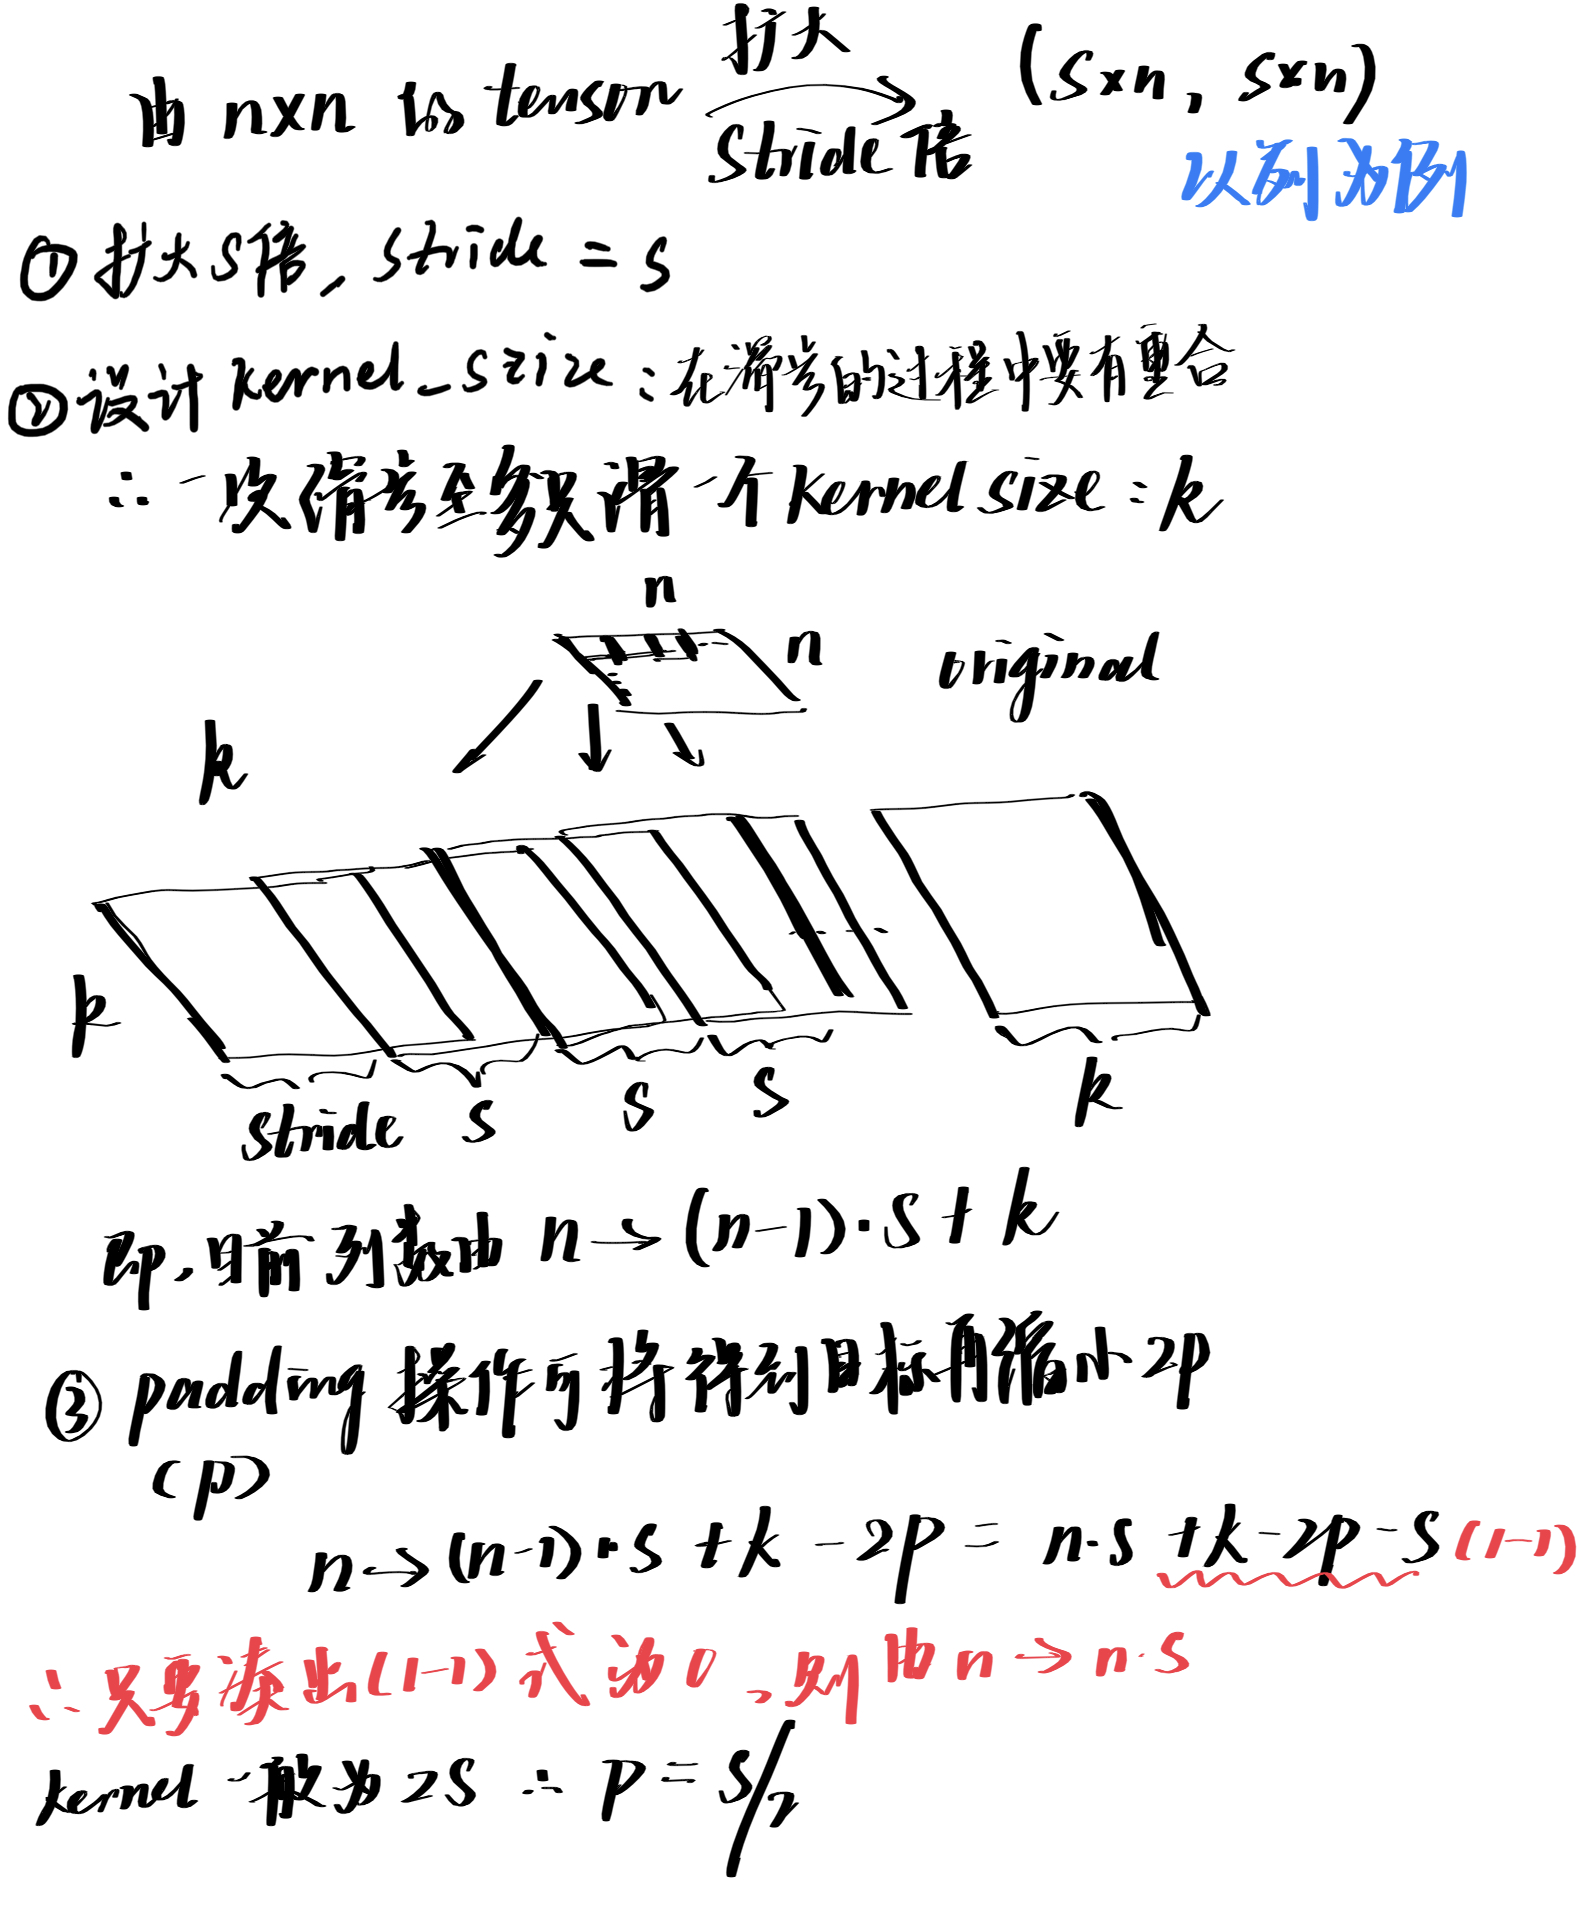 由 n×n 的 tensor 扩大 stride倍 (s×n, s×n)
以列为例
① 扩大s倍, stride = s
② 设计 kernel_szize : 在滑步的过程中要有重合
∴ 一次滑步至多只滑一个 kernel size : k
n
n original
k
k
stride s s s k
即, 目前列数由 n → (n-1)·s + k
③ padding 操作可将得到目标再缩小 2p
(p)
n → (n-1)·s + k - 2p = n·s + k - 2p - s (1-1)
∴ 只要凑出(1-1)式为0, 则由 n → n·s
kernel 一般为 2s ∴ p = s/2